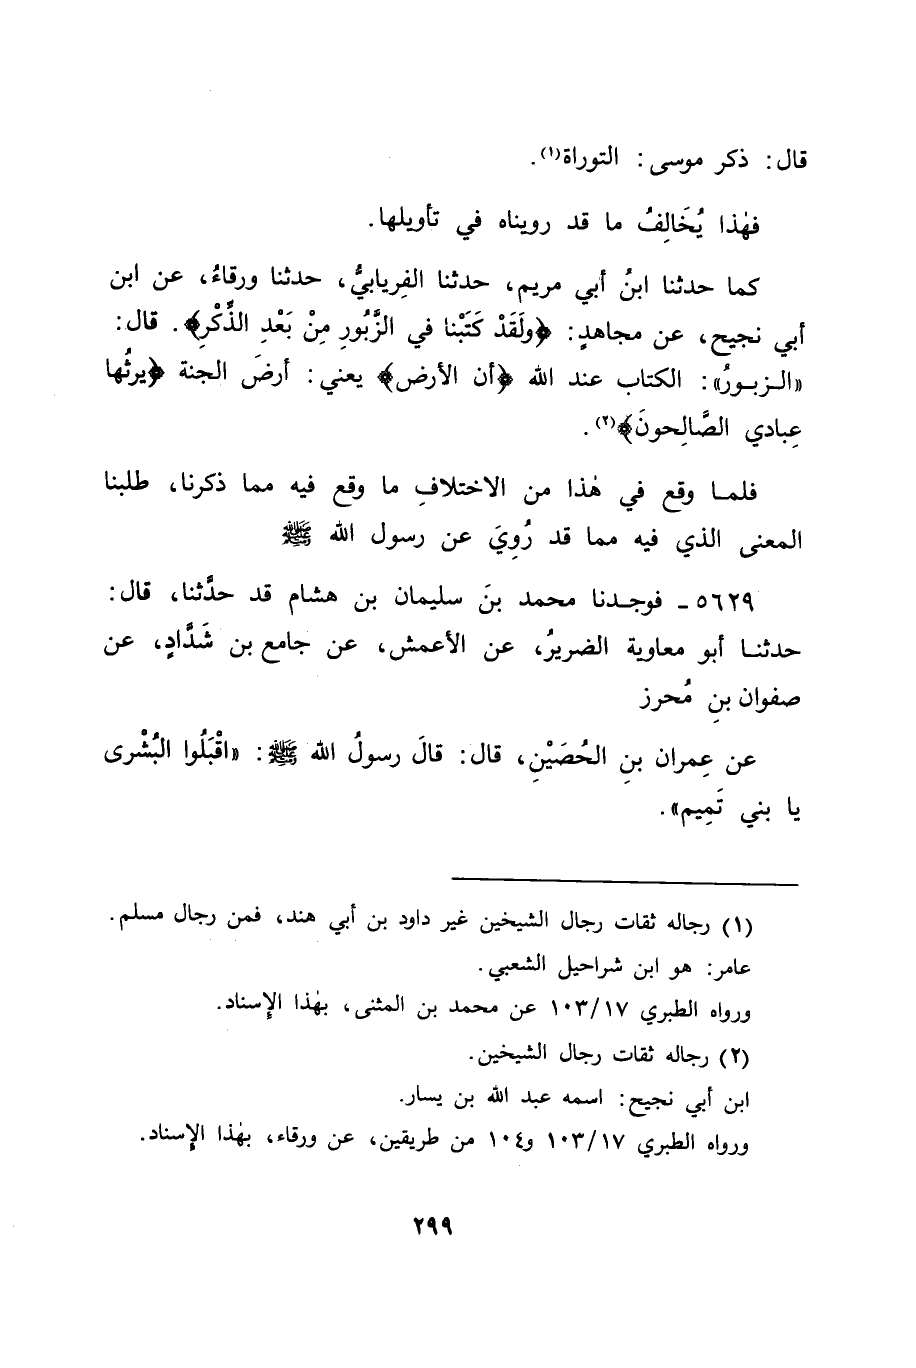 قال: ذكر موسى: التوراة(١).
فهٰذا يُخَالِفُ ما قد رويناه في تأويلها.
كما حدثنا ابنُ أبي مريم، حدثنا الفِريابيُّ، حدثنا ورقاءُ، عن ابن
أبي نجيح، عن مجاهدٍ: ﴿ولَقَدْ كَتَبْنا في الزَّبُورِ مِنْ بَعْدِ الذَّكْرِ﴾. قال:
«الـزبـورُ»: الكتاب عند الله ﴿أن الأرض﴾ يعني: أرضَ الجنة ﴿يرثُها
عِبادي الصَّالِحونَ﴾(٢).
فلمـا وقع في هٰذا من الاختلافِ ما وقع فيه مما ذكرنا، طلبنا
المعنى الذي فيه مما قد رُوِيَ عن رسول الله ﷺ
٥٦٢٩ ـ فوجـدنا محمد بنَ سليمان بن هشام قد حدَّثنا، قال:
حدثنـا أبو معاوية الضريرُ، عن الأعمش، عن جامع بن شَدَّادٍ، عن
صفوان بنِ مُحرِز
عن عِمران بنِ الحُصَيْنِ، قال: قالَ رسولُ الله ﷺ: «اقْبَلُوا البُشْرى
يا بني تَمِيم».
(١) رجاله ثقات رجال الشيخين غير داود بن أبي هند، فمن رجال مسلم.
عامر: هو ابن شراحيل الشعبي.
ورواه الطبري ١٠٣/١٧ عن محمد بن المثنى، بهٰذا الإسناد.
(٢) رجاله ثقات رجال الشيخين.
ابن أبي نجيح: اسمه عبد الله بن يسار.
ورواه الطبري ١٠٣/١٧ و١٠٤ من طريقين، عن ورقاء، بهٰذا الإسناد.
٢٩٩